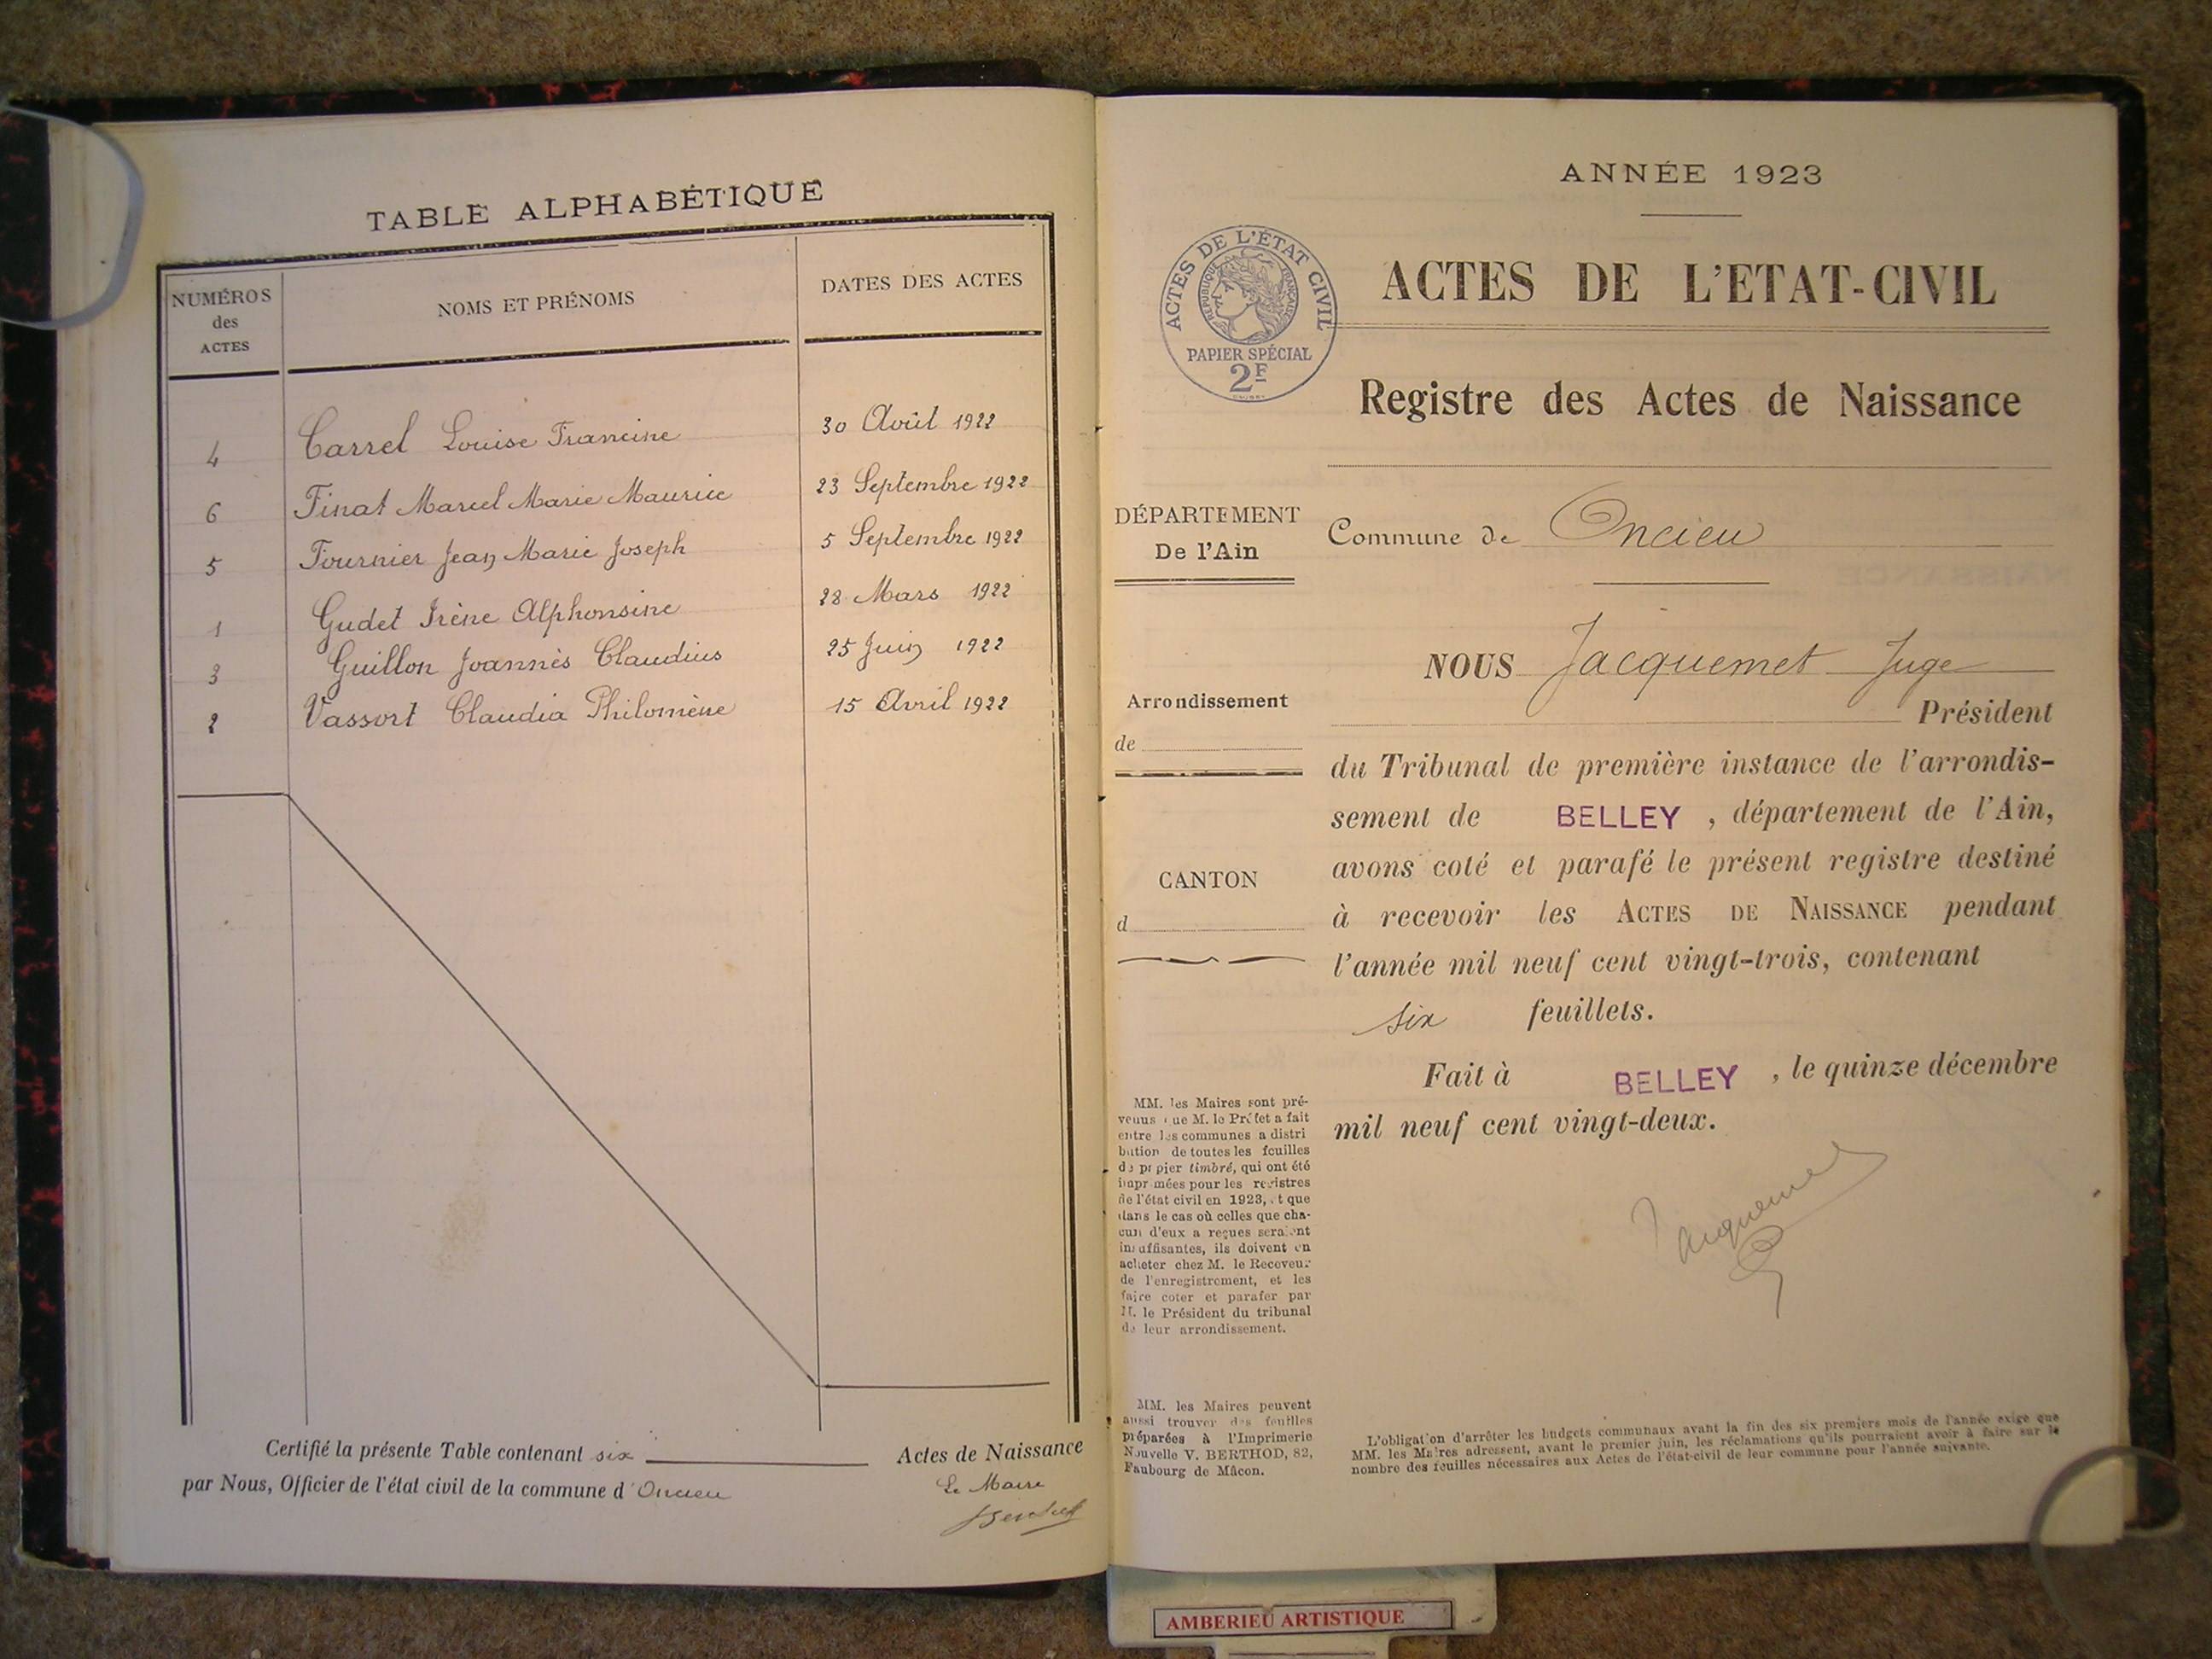 TABLE ALPHABÉTIQUE
NUMÉROS
des
ACTES
NOMS ET PRÉNOMS
DATES DES ACTES
4 Carrel Louise Francine 30 Août 1922
6 Finat Marcel Marie Maurice 23 Septembre 1922
5 Fournier Jean Marie Joseph 5 Septembre 1922
1 Gudet Irène Alphonsine 28 Mars 1922
3 Guillon Joannès Claudius 25 Juin 1922
2 Vassort Claudia Philomène 15 Avril 1922
Certifié la présente Table contenant six Actes de Naissance
par Nous, Officier de l'état civil de la commune d'Oncieu
Le Maire
ANNÉE 1923
ACTES DE L'ÉTAT CIVIL
RÉPUBLIQUE FRANÇAISE
PAPIER SPÉCIAL
2F
ACTES DE L'ETAT-CIVIL
Registre des Actes de Naissance
DÉPARTEMENT
De l'Ain
Commune de Oncieu
Arrondissement
de
CANTON
d
NOUS Jacquemet Juge
Président
du Tribunal de première instance de l'arrondis-
sement de BELLEY, département de l'Ain,
avons coté et parafé le présent registre destiné
à recevoir les ACTES DE NAISSANCE pendant
l'année mil neuf cent vingt-trois, contenant
six feuillets.
Fait à BELLEY, le quinze décembre
mil neuf cent vingt-deux.
Jacquemet
MM. les Maires sont pré-
venus que M. le Préfet a fait
entre les communes a distri
bution de toutes les feuilles
de papier timbré, qui ont été
imprimées pour les registres
de l'état civil en 1923, et que
dans le cas où celles que cha-
cun d'eux a reçues seraient
insuffisantes, ils doivent en
acheter chez M. le Receveur
de l'enregistrement, et les
faire coter et parafer par
M. le Président du tribunal
de leur arrondissement.
MM. les Maires peuvent
aussi trouver des feuilles
préparées à l'Imprimerie
Nouvelle V. BERTHOD, 82,
Faubourg de Mâcon.
L'obligation d'arrêter les budgets communaux avant la fin des six premiers mois de l'année exige que
MM. les Maires adressent, avant le premier juin, les réclamations qu'ils pourraient avoir à faire sur le
nombre des feuilles nécessaires aux Actes de l'état-civil de leur commune pour l'année suivante.
AMBERIEU ARTISTIQUE